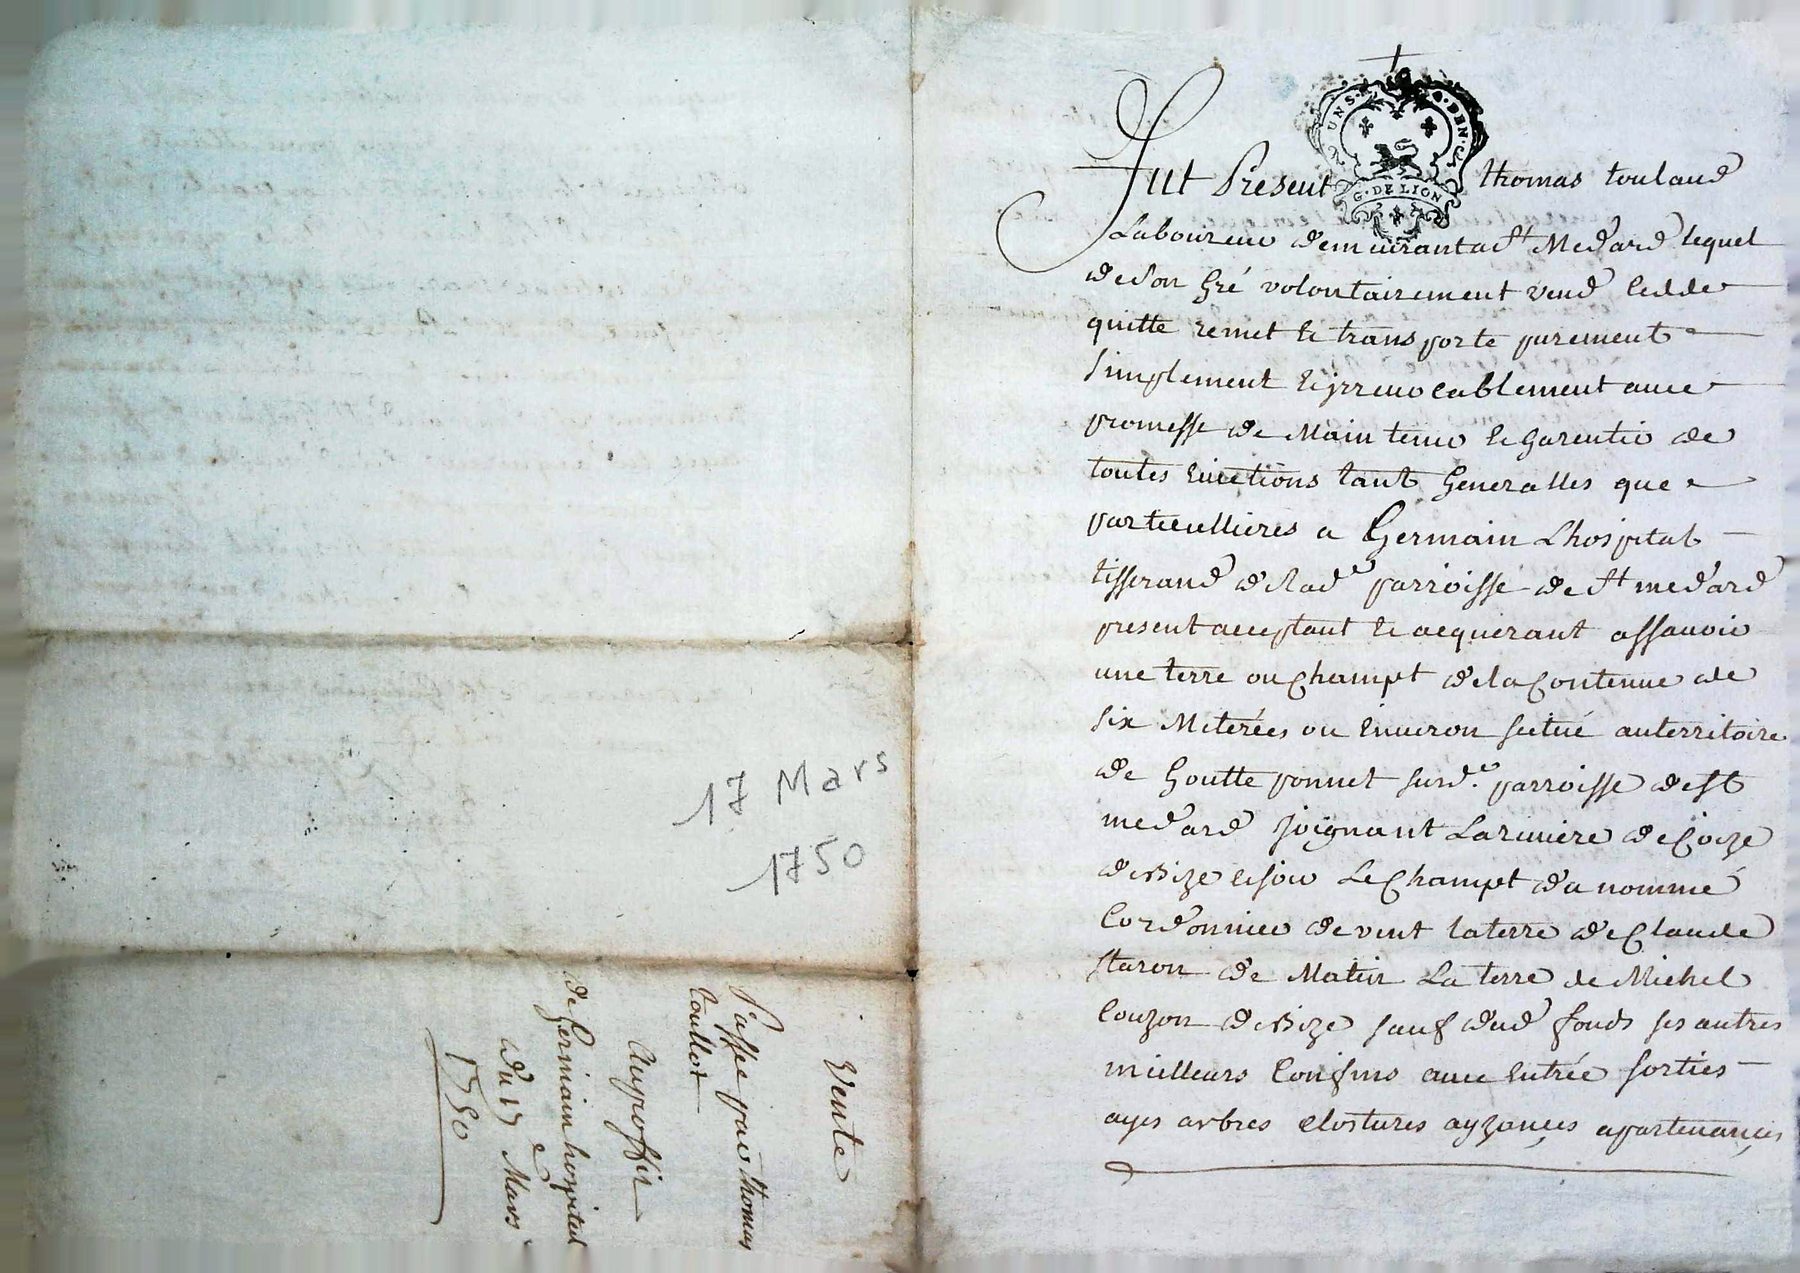 17 Mars
1750
Vente
Passée par Thomas
Toullot
Au proffit
de Germain hospital
du 17e Mars
1750
UN S. 4 DEN.
G. DE LION
Fut Present Thomas toulaud
Laboureur demeurant a St Medard lequel
de son Gré volontairement vend cedde
quitte remet et transporte purement
simplement et jrreuocablement auec
promesse de Maintenir et Garentir de
toutes Euictions tant Generalles que
particullieres a Germain Lhospital
tisserand de lad.e parroisse de St medard
present acceptant et acquerant assauoir
une terre ou champt de la Contenue de
six Meterées ou Enuiron scitué au territoire
de Goutte ponnet surd.e parroisse de St
medard joignant La riuiere de Coize
de Bize et soir Le Champt du nommé
Cordonnier de vent la terre de Claude
staron de Matin La terre de Michel
Couzon de Bize sauf dud fonds ses autres
meilleurs Confins auec Entrée sorties
ayes arbres clostures ayzances apartenances